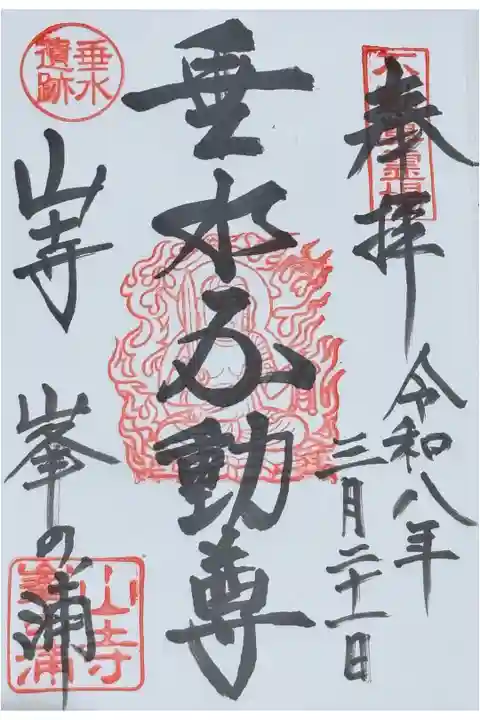 奉拝
令和八年
三月二十一日
垂水不動尊
山寺 峯の浦
垂水
遺跡
山寺